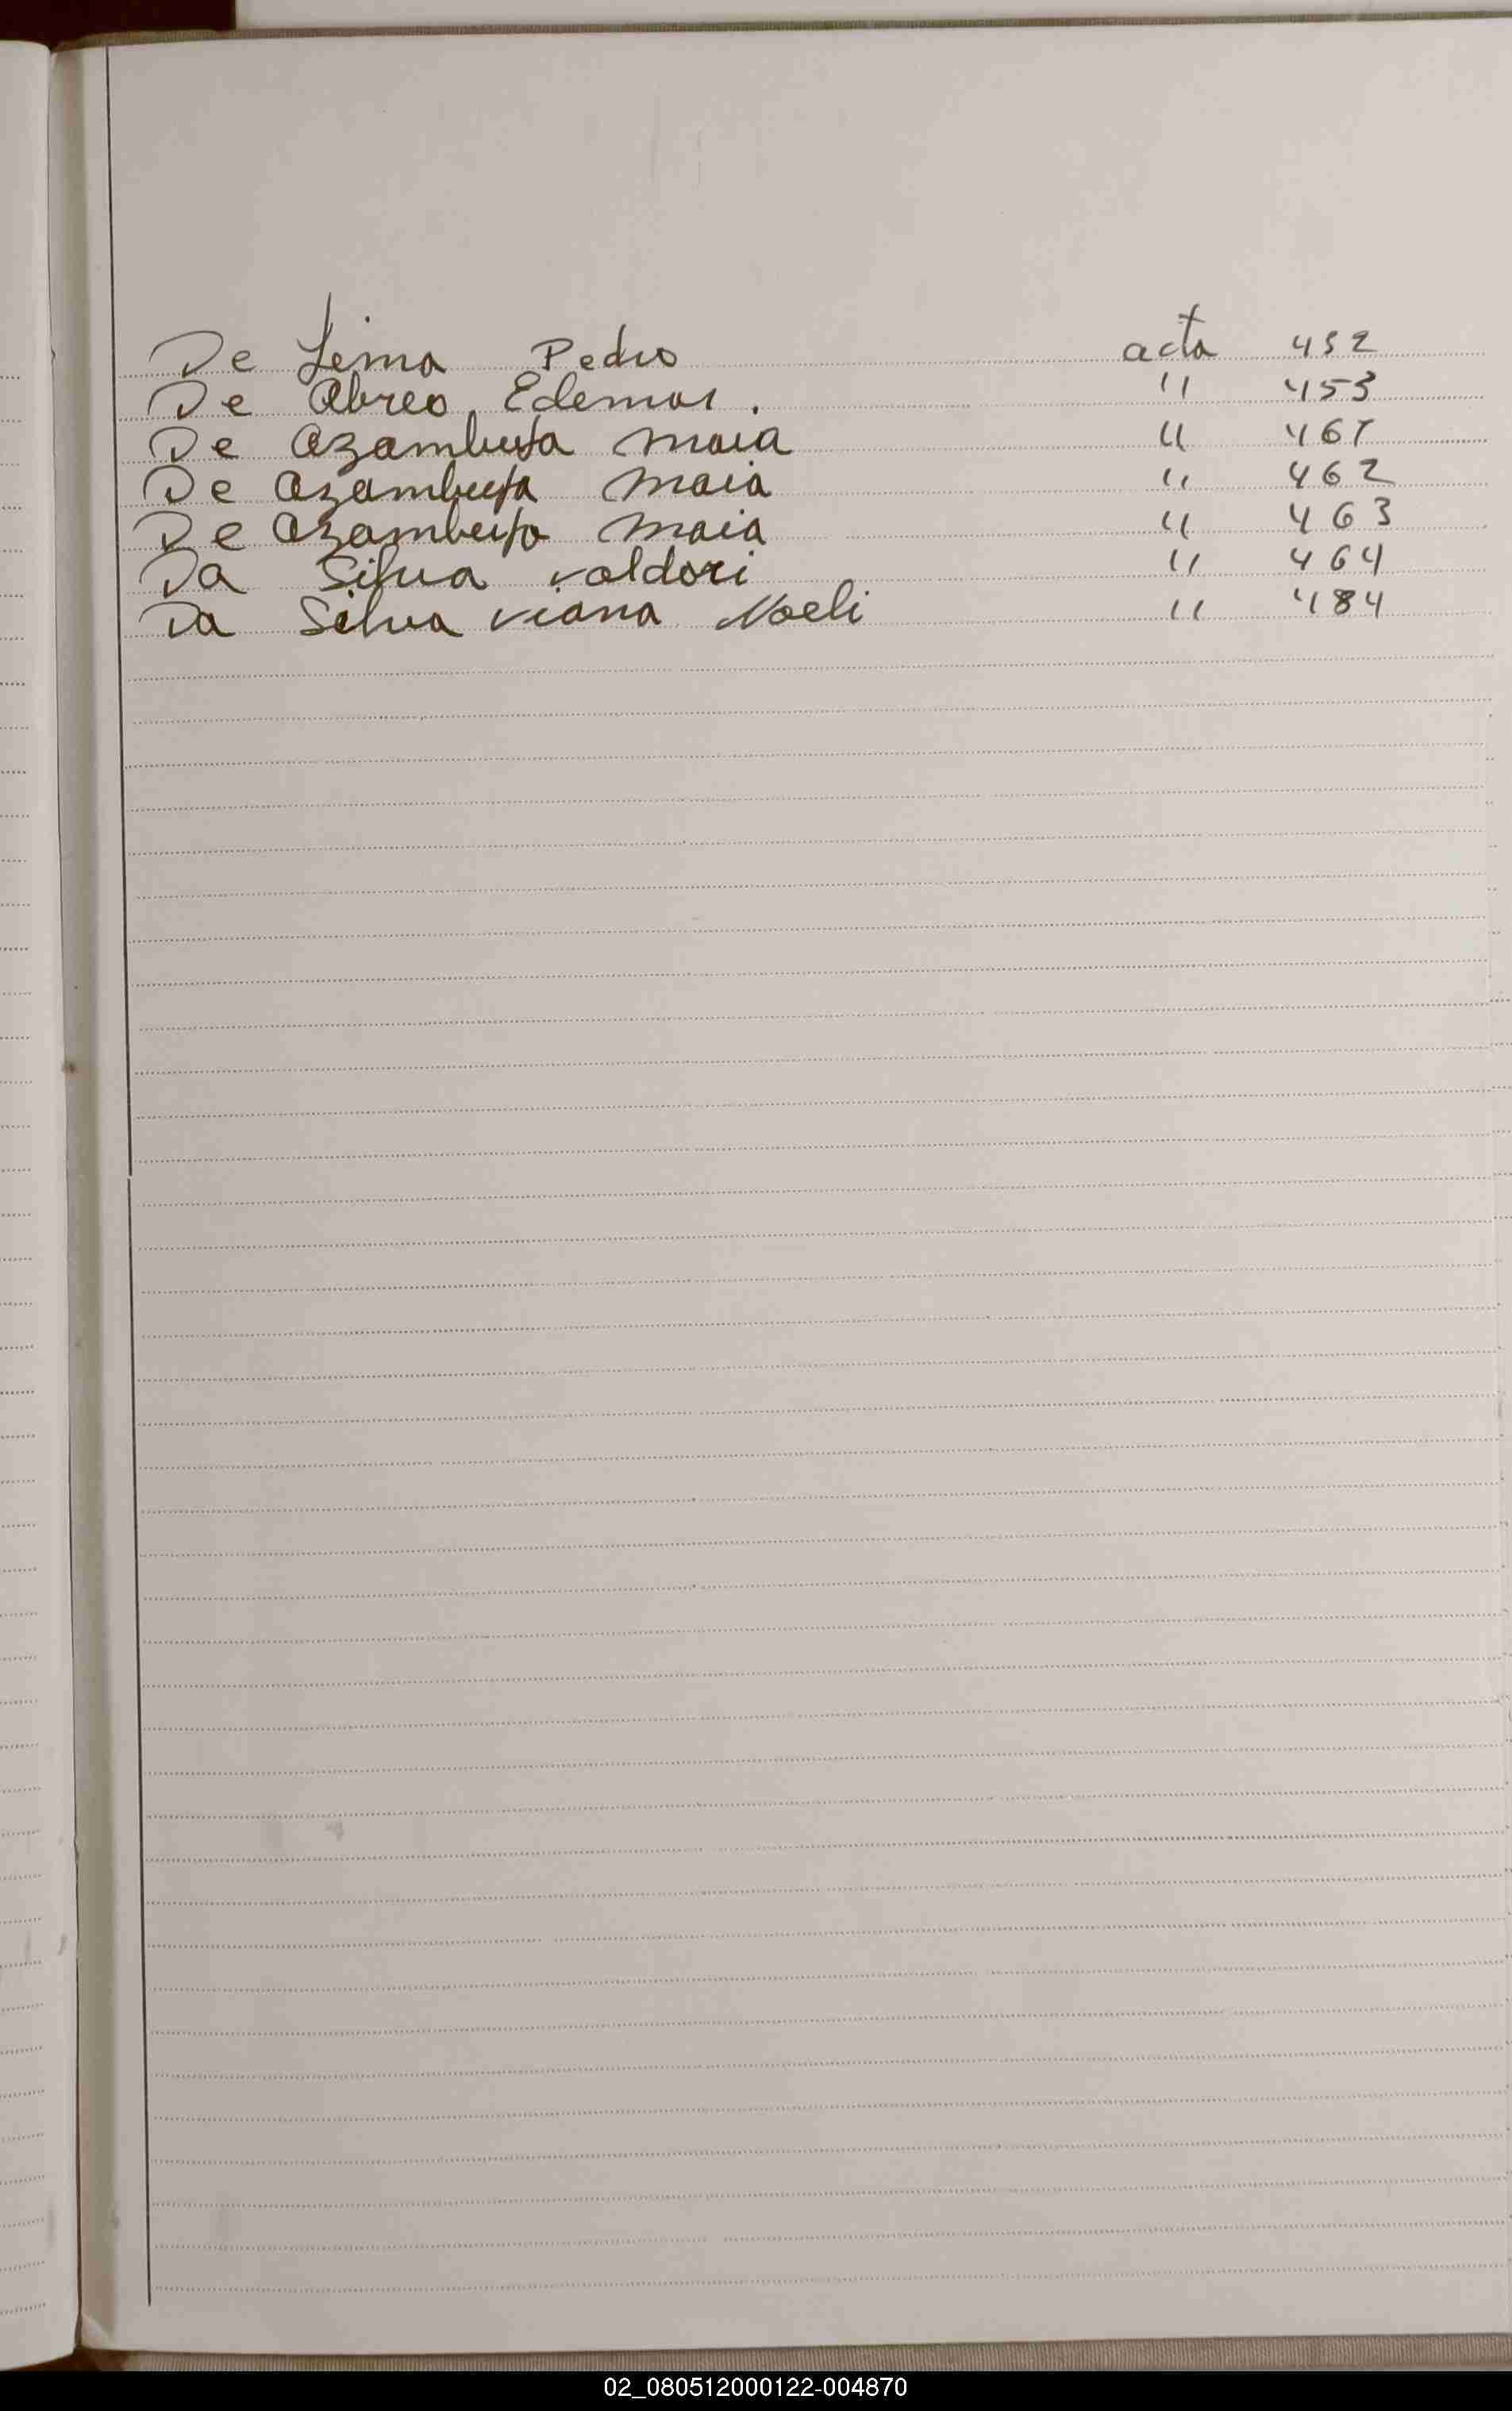 De Lima Pedro acta 452
De Abreo Edemar. " 453
De Azambuja Maia " 461
De Azambuja Maia " 462
De Azambuja Maia " 463
Da Silva Valdori " 464
Da Silva Viana Noeli " 484
02_080512000122-004870